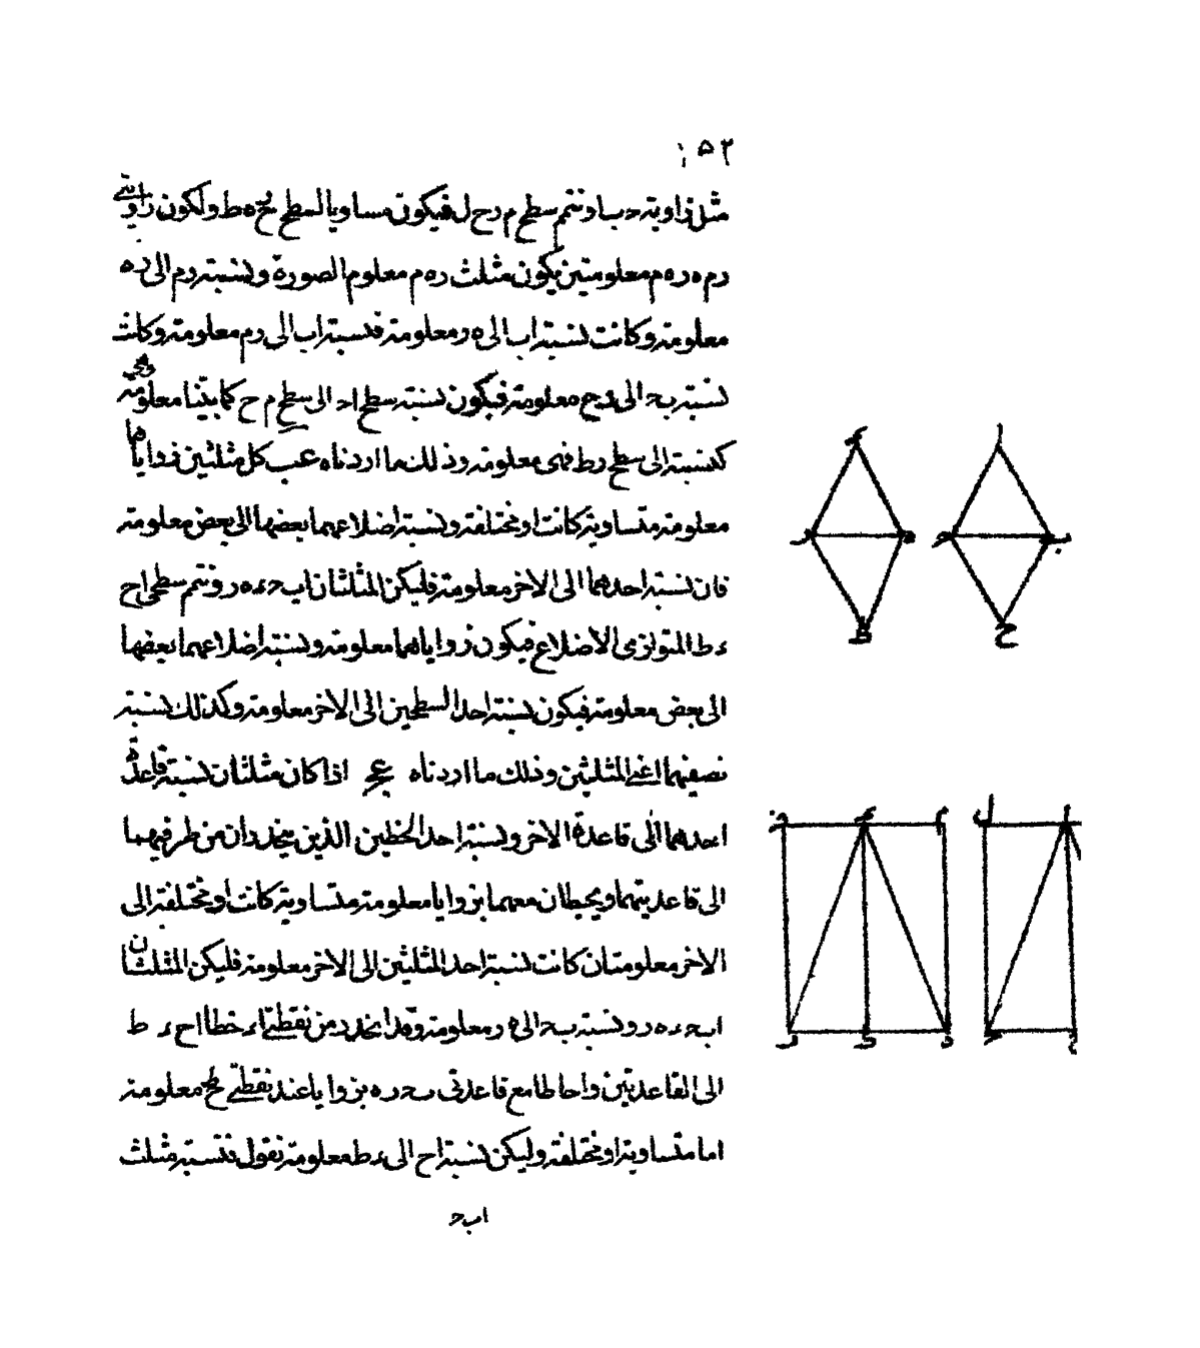 مثل زاوية د ب ا ونتمم سطح م ر ح ل فيكون مساويا لسطح ح ه ط ولكون زاويتي
ر م ه ر ه م معلومتين يكون مثلث ر ه م معلوم الصورة ونسبة ر م الى ر ه
معلومة وكانت نسبة ا ب الى ه ر معلومة فنسبة ا ب الى ر م معلومة وكانت
نسبة ب ح الى ر ح معلومة فيكون نسبة سطح ا ح الى سطح م ح كما بينا معلومة وهي
كنسبته الى سطح ر ط فهي معلومة وذلك ما اردناه عب كل مثلثين زواياهما
معلومة متساوية كانت او مختلفة ونسبة اضلاعهما بعضها الى بعض معلومة
فان نسبة احدهما الى الاخر معلومة فليكن المثلثان ا ب ح ء ه ر ونتمم سطحى ا ح
ء ط المتوازى الاضلاع فيكون زواياهما معلومة ونسبة اضلاعهما بعضها
الى بعض معلومة فيكون نسبة احد السطحين الى الاخر معلومة وكذلك نسبة
نصفيهما اعنى المثلثين وذلك ما اردناه عج اذا كان مثلثان نسبة قاعدة
احدهما الى قاعدة الاخر ونسبة احد الخطين الذين يخرجان من طرفيهما
الى قاعدتيهما ويحيطان معهما بزوايا معلومة متساوية كانت او مختلفة الى
الاخر معلومتان كانت نسبة احد المثلثين الى الاخر معلومة فليكن المثلثان
ا ب ح ء ه ر ونسبة ب ح الى ه ر معلومة وقد اخرج من نقطتى ا ء خطا ا ح ء ط
الى القاعدتين واحاطا مع قاعدتى ب ح ر ه بزوايا عند نقطتى ح ط معلومة
اما متساوية او مختلفة وليكن نسبة ا ح الى ء ط معلومة نقول فنسبة مثلث
ا ب ح